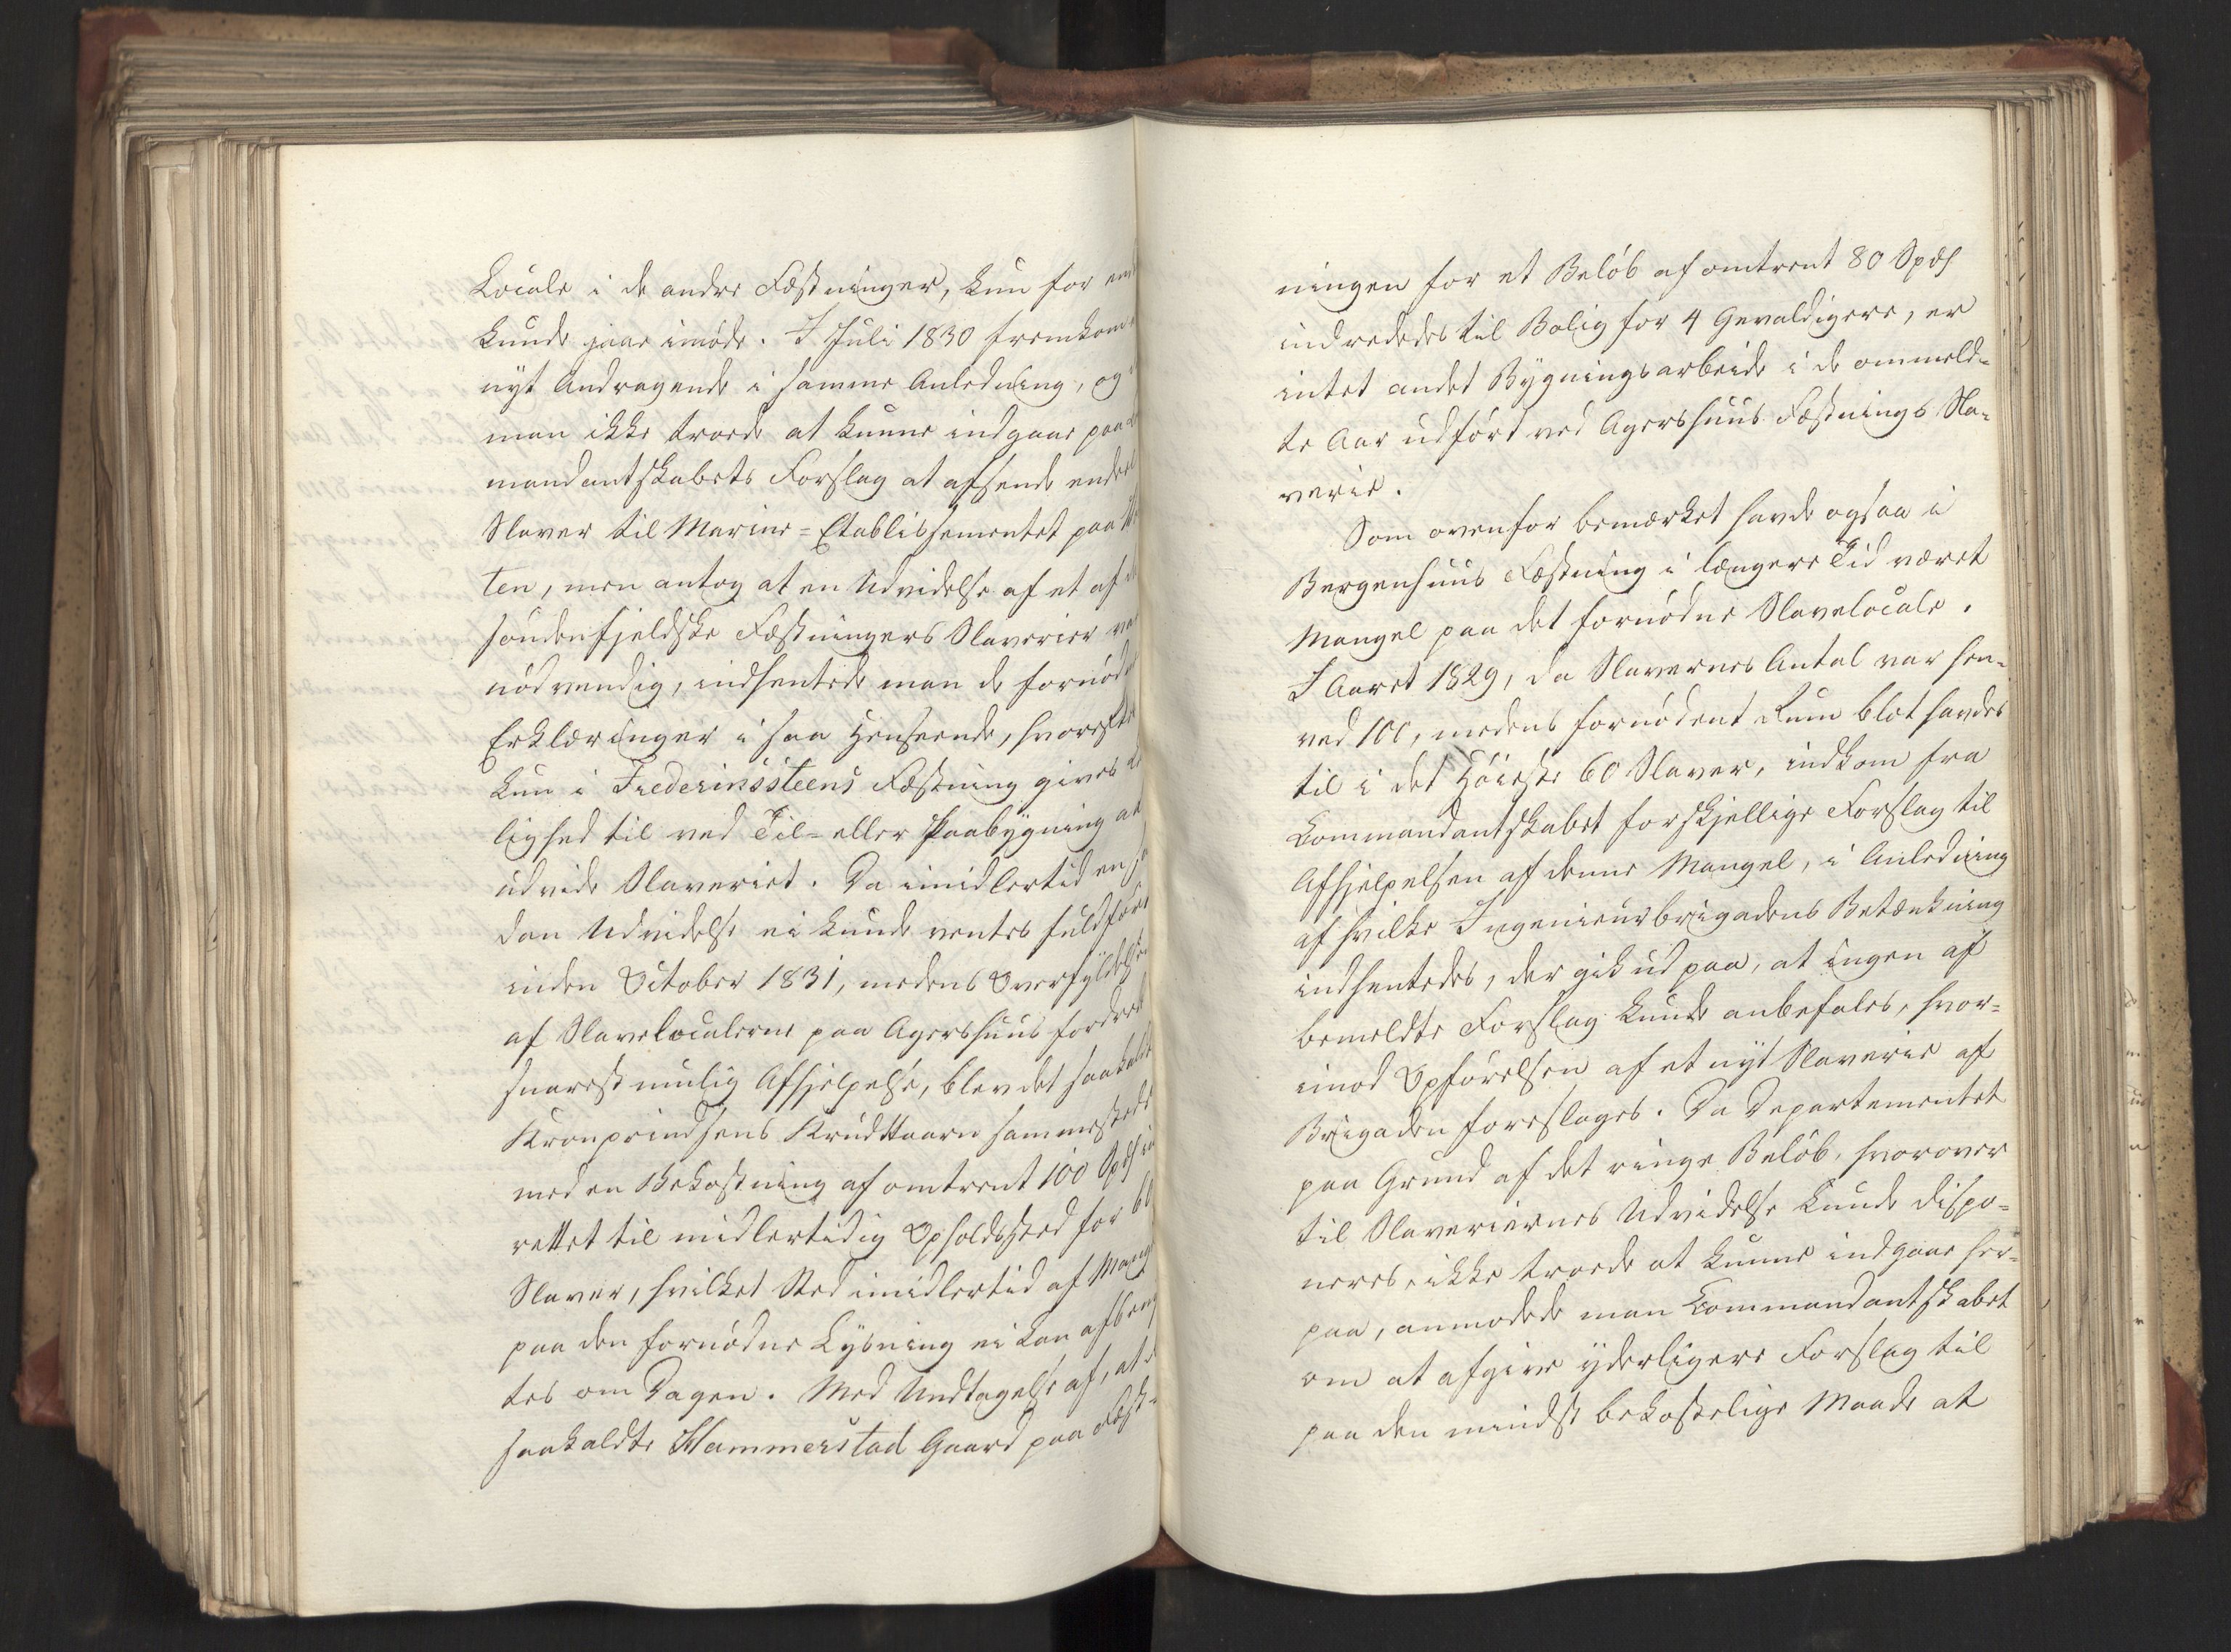 Locale i de andre Fæstninger, kun for en
kunde gaae imøde. I Juli 1830 fremkom
nyt Andragende i samme Anledning, og
man ikke troede at kunne indgaae paa
mandantskabets Forslag at afsende endeel
Slaver til Marine-Etablissementet paa
ten, men antog at en Udvidelse af et af de
søndenfjeldske Fæstningers Slaverier var
nødvendig, indhentede man de fornødne
Erklæringer i saa Henseende, hvorefter
kun i Fredericssteens Fæstning gives
lighed til ved Til- eller Paabygning at
udvide Slaveriet. Da imidlertid en
dan Udvidelse ei kunde ventes fuldført
inden October 1831, medens Overfyldelsen
af Slavelocalerne paa Agershuus fordrede
snarest mulig Afhjelpelse, blev det saakaldte
Kronprindsens Krudttaarn sammesteds
med en Bekostning af omtrent 100 Spd
rettet til midlertidig Opholdssted for 60
Slaver, hvilket Sted imidlertid af Mangel
paa den fornødne Lysning ei kan afben
tes om Dagen. Med Undtagelse af, at
saakaldte Hammerstad Gaard paa Fæst-
ningen for et Beløb af omtrent 80 Spd
indrededes til Bolig for 4 Gevaldigere, er
intet andet Bygningsarbeide i de ommeld-
te Aar udført ved Agershuus Fæstnings Sla-
verie.
Som ovenfor bemærket havde ogsaa i
Bergenhuus Fæstning i længere Tid været
Mangel paa det fornødne Slavelocale.
I Aaret 1829, da Slavernes Antal var hen-
ved 100, medens fornødent Rum blot havdes
til i det Høieste 60 Slaver, indkom fra
Commandantskabet forskjellige Forslag til
Afhjelpelsen af denne Mangel, i Anledning
af hvilke Ingenieurbrigadens Betænkning
indhentedes, der gik ud paa, at ingen af
bemeldte Forslag kunde anbefales, hvor-
imod Opførelsen af et nyt Slaverie af
Brigaden foresloges. Da Departementet
paa Grund af det ringe Beløb, hvorover
til Slaveriernes Udvidelse kunde dispo-
neres, ikke troede at kunne indgaae her-
paa, anmodede man Commandantskabet
om at afgive yderligere Forslag til
paa den mindst bekostelige Maade at